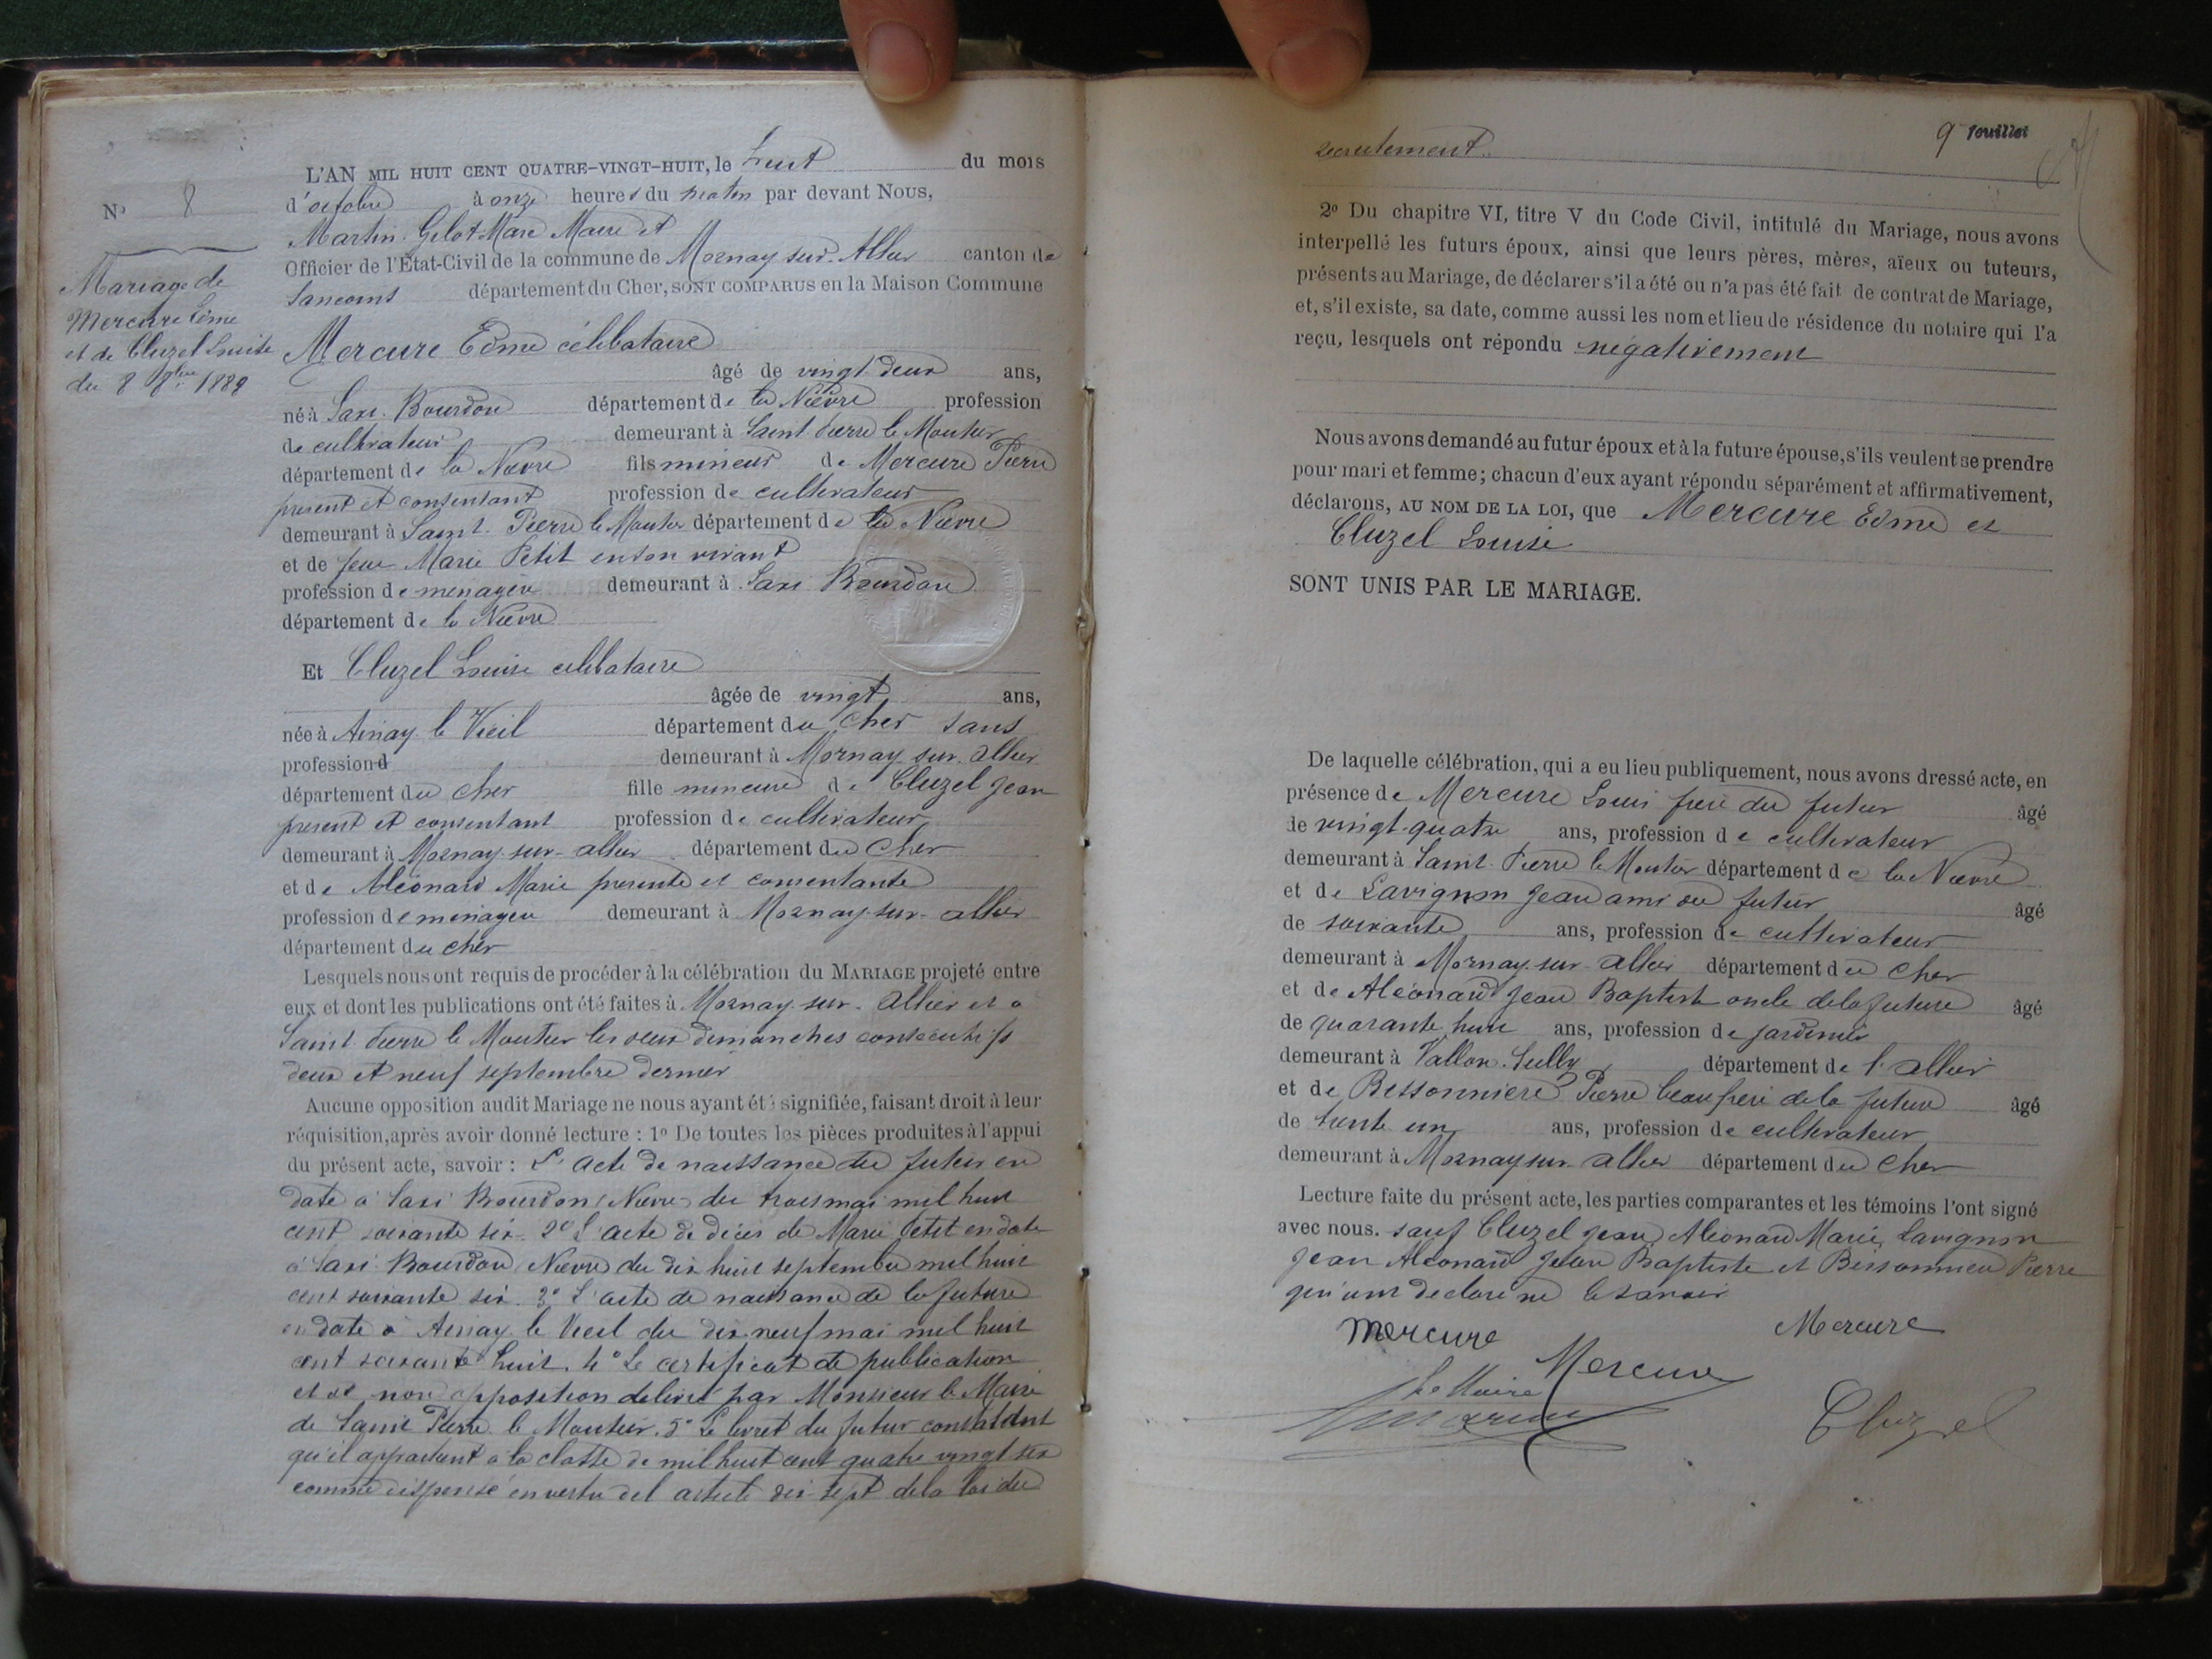 N° 8
Mariage de
Mercure Edme
et de Cluzel Louise
du 8 8bre 1888
L'AN MIL HUIT CENT QUATRE-VINGT-HUIT, le huit du mois
d'octobre à onze heures du matin par devant Nous,
Martin Gilot Marc Maire et
Officier de l'État-Civil de la commune de Mornay sur Allier canton de
Sancoins département du Cher, SONT COMPARUS en la Maison Commune
Mercure Edme célibataire
âgé de vingt deux ans,
né à Saxi Bourdon département de la Nièvre profession
de cultivateur demeurant à Saint Pierre le Moutier
département de la Nièvre fils mineur de Mercure Pierre
présent et consentant profession de cultivateur
demeurant à Saint Pierre le Moutier département de la Nièvre
et de feue Marie Petit en son vivant
profession de ménagère demeurant à Saxi Bourdon
département de la Nièvre
Et Cluzel Louise célibataire
âgée de vingt ans,
née à Ainay le Vieil département du Cher sans
profession d demeurant à Mornay sur Allier
département du Cher fille mineure de Cluzel Jean
présent et consentant profession de cultivateur
demeurant à Mornay-sur-allier département du Cher
et de Aléonard Marie presente et consentante
profession de ménagère demeurant à Mornay-sur-allier
département du cher
Lesquels nous ont requis de procéder à la célébration du MARIAGE projeté entre
eux et dont les publications ont été faites à Mornay-sur-Allier et à
Saint Pierre le Moutier les deux dimanches consécutifs
deux et neuf septembre dernier
Aucune opposition audit Mariage ne nous ayant été signifiée, faisant droit à leur
réquisition, après avoir donné lecture : 1° De toutes les pièces produites à l'appui
du présent acte, savoir : L'acte de naissance du futur en
date à Saxi Bourdon (Nièvre) du trois mai mil huit
cent soixante six. 2° L'acte de décès de Marie Petit en date
à Saxi Bourdon Nièvre du dix huit septembre mil huit
cent soixante six. 3° L'acte de naissance de la future
en date à Ainay le Vieil du dix neuf mai mil huit
cent soixante huit. 4° Le certificat de publication
et de non opposition délivré par Monsieur le Maire
de Saint Pierre le Moutier. 5° Le livret du futur constatant
qu'il appartient à la classe de mil huit cent quatre vingt six
comme dispensé en vertu del article dix sept de la loi du
9 feuillet
recrutement.
2° Du chapitre VI, titre V du Code Civil, intitulé du Mariage, nous avons
interpellé les futurs époux, ainsi que leurs pères, mères, aïeux ou tuteurs,
présents au Mariage, de déclarer s'il a été ou n'a pas été fait de contrat de Mariage,
et, s'il existe, sa date, comme aussi les nom et lieu de résidence du notaire qui l'a
reçu, lesquels ont répondu négativement
Nous avons demandé au futur époux et à la future épouse, s'ils veulent se prendre
pour mari et femme; chacun d'eux ayant répondu séparément et affirmativement,
déclarons, AU NOM DE LA LOI, que Mercure Edme et
Cluzel Louise
SONT UNIS PAR LE MARIAGE.
De laquelle célébration, qui a eu lieu publiquement, nous avons dressé acte, en
présence de Mercure Louis frère du futur âgé
de vingt-quatre ans, profession de cultivateur
demeurant à Saint Pierre le Moutier département de la Nièvre
et de Lavignon Jean ami du futur âgé
de soixante ans, profession de cultivateur
demeurant à Mornay-sur-Allier département du Cher
et de Aléonard Jean Baptiste oncle de la future âgé
de quarante huit ans, profession de jardinier
demeurant à Vallon-Sully département de l'allier
et de Bessonniere Pierre beau frère de la future âgé
de trente un ans, profession de cultivateur
demeurant à Mornay sur allier département du Cher
Lecture faite du présent acte, les parties comparantes et les témoins l'ont signé
avec nous. sauf Cluzel Jean, Aléonard Marie, Lavignon
Jean Aléonard Jean Baptiste et Bessonniere Pierre
qui ont déclaré ne le savoir
Mercure Mercure
Le Maire Mercure
Cluzel